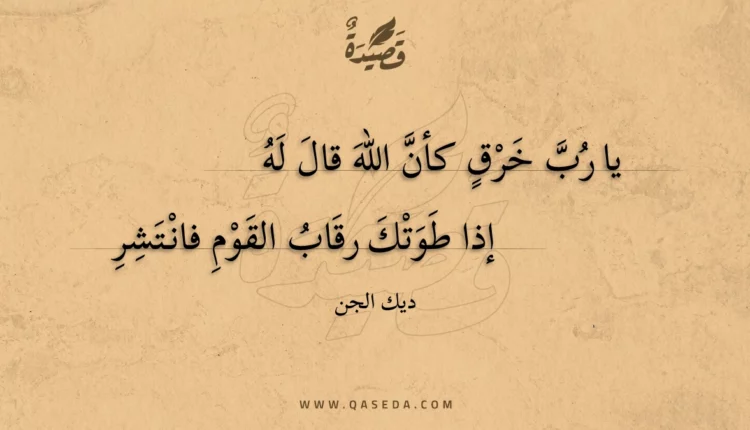 قَصِيْدَةٌ
يا رُبَّ خَرْقٍ كأنَّ اللهَ قالَ لَهُ
إذا طَوَتْكَ رقَابُ القَوْمِ فانْتَشِرِ
ديك الجن
WWW.QASEDA.COM